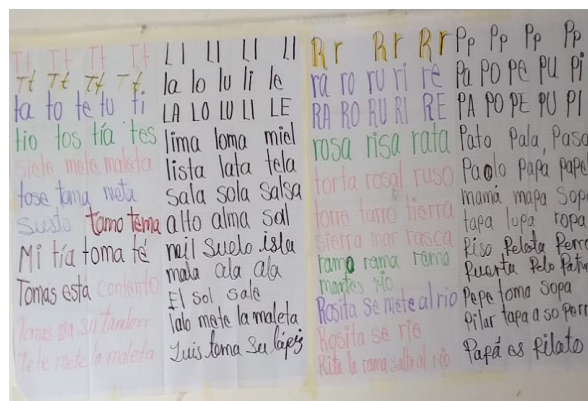 Tt Tt Tt Tt
Tt Tt Tt Tt
ta to te tu ti
tio tos tía tes
siete mete maleta
tose toma meta
Susto tomo tema
Mi tía toma té
Tomas está contento
Tomas da su
Tete mete la maleta
Ll Ll Ll Ll
la lo lu li le
LA LO LU LI LE
lima loma miel
lista lata tela
sala sola salsa
alto alma sal
mil suelo isla
mala ala ala
El sol sale
lalo mete la maleta
Luis toma su lápiz
Rr Rr Rr
ra ro ru ri re
RA RO RU RI RE
rosa risa rata
torta rosal ruso
torre tarro tierra
sierra mar rasca
ramo rama remo
martes río
Rosita se mete al río
Rosita se ríe
Rita la rama salta al río
Pp Pp Pp Pp
Pa PO PE PU Pi
PA PO PE PU PI
Pato Pala, Paso
Paolo Papa pape
mamá mapa sopa
tapa lupa ropa
Piso Pelota Perro
Puerta Pelo
Pepe toma sopa
Pilar tapa a so perr
Papá es Pilato